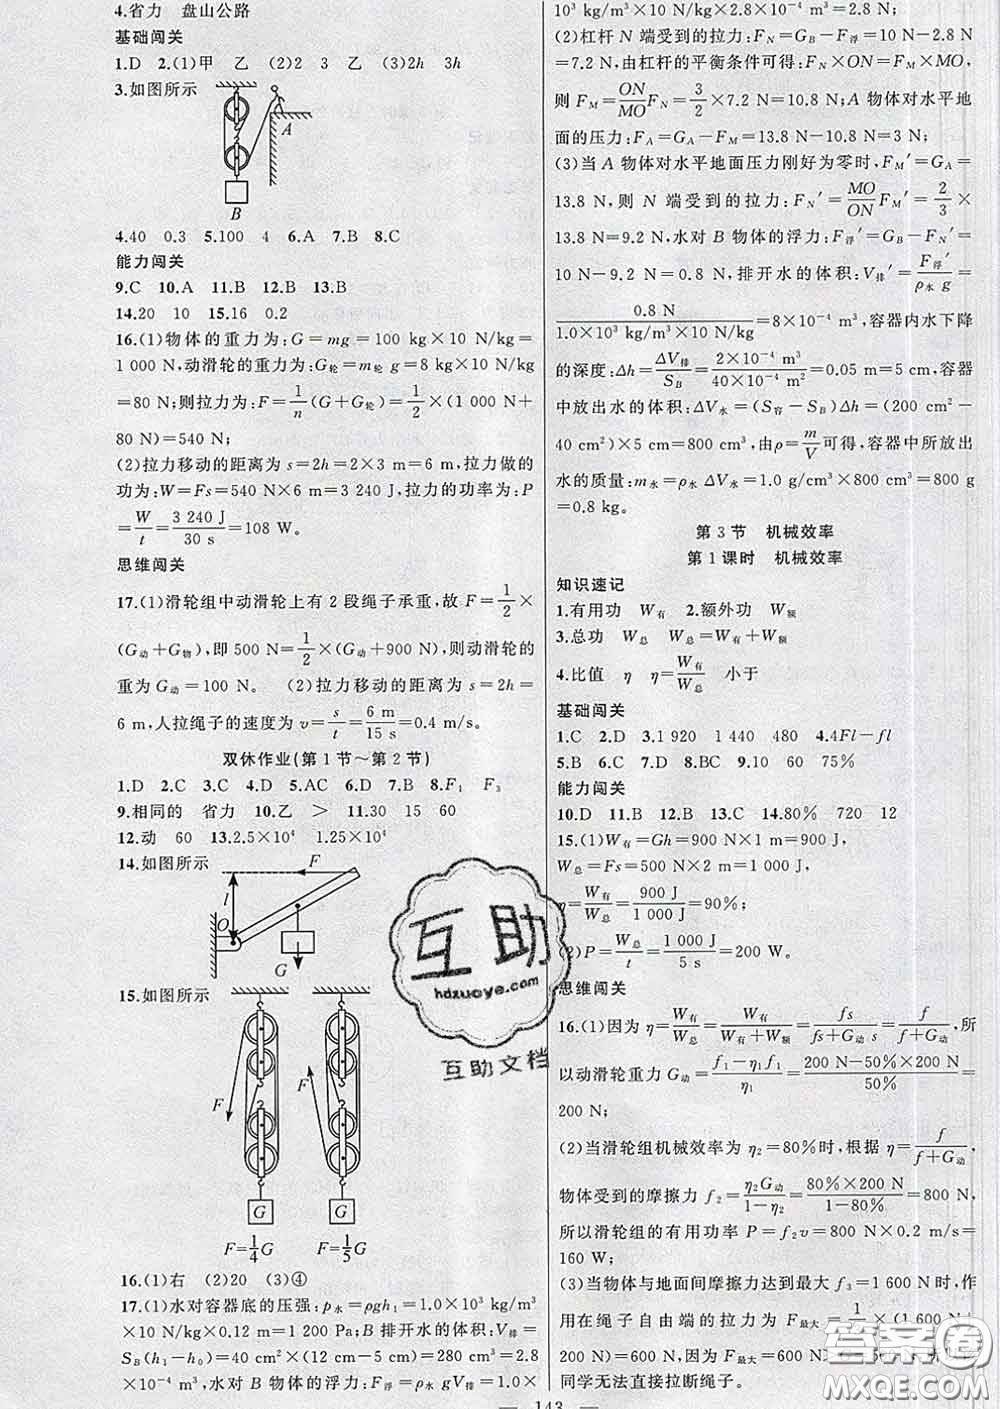 4.省力 盘山公路
基础闯关
1.D 2.(1)甲 乙 (2)2 3 乙 (3)2h 3h
3.如图所示
A
B
4.40 0.3 5.100 4 6.A 7.B 8.C
能力闯关
9.C 10.A 11.B 12.B 13.B
14.20 10 15.16 0.2
16.(1)物体的重力为:G=mg=100 kg×10 N/kg=
1 000 N,动滑轮的重力为:G轮=m轮 g=8 kg×10 N/kg
=80 N;则拉力为:F=1/n(G+G轮)=1/2×(1 000 N+
80 N)=540 N;
(2)拉力移动的距离为 s=2h=2×3 m=6 m,拉力做的
功为:W=Fs=540 N×6 m=3 240 J,拉力的功率为:P
=W/t=3 240 J/30 s=108 W。
思维闯关
17.(1)滑轮组中动滑轮上有 2 段绳子承重,故 F=1/2×
(G动+G物),即 500 N=1/2×(G动+900 N),则动滑轮的
重为 G动=100 N。 (2)拉力移动的距离为 s=2h=
6 m,人拉绳子的速度为 v=s/t=6 m/15 s=0.4 m/s。
双休作业(第 1 节～第 2 节)
1.D 2.C 3.C 4.D 5.AC 6.D 7.B 8.F₁ F₃
9.相同的 省力 10.乙 > 11.30 15 60
12.动 60 13.2.5×10⁴ 1.25×10⁴
14.如图所示
F
l
O
G
15.如图所示
F F
G G
F=1/4G F=1/5G
16.(1)右 (2)20 (3)④
17.(1)水对容器底的压强:p水=ρgh₁=1.0×10³ kg/m³
×10 N/kg×0.12 m=1 200 Pa;B 排开水的体积:V排=
S_B(h₁−h₀)=40 cm²×(12 cm−5 cm)=280 cm³=2.8
×10⁻⁴ m³,水对 B 物体的浮力:F浮=ρ水 gV排=1.0×
10³ kg/m³×10 N/kg×2.8×10⁻⁴ m³=2.8 N;
(2)杠杆 N 端受到的拉力:F_N=G_B−F浮=10 N−2.8 N
=7.2 N,由杠杆的平衡条件可得:F_N×ON=F_M×MO,
则 F_M=ON/MO F_N=3/2×7.2 N=10.8 N;A 物体对水平地
面的压力:F_A=G_A−F_M=13.8 N−10.8 N=3 N;
(3)当 A 物体对水平地面压力刚好为零时,F_M′=G_A=
13.8 N,则 N 端受到的拉力:F_N′=MO/ON F_M′=2/3×
13.8 N=9.2 N,水对 B 物体的浮力:F浮′=G_B−F_N′=
10 N−9.2 N=0.8 N,排开水的体积:V排′=F浮′/ρ水 g=
0.8 N/1.0×10³ kg/m³×10 N/kg=8×10⁻⁴ m³,容器内水下降
的深度:Δh=ΔV排/S_B=2×10⁻⁴ m³/40×10⁻⁴ m²=0.05 m=5 cm,容器
中放出水的体积:ΔV水=(S容−S_B)Δh=(200 cm²−
40 cm²)×5 cm=800 cm³,由ρ=m/V可得,容器中所放出
水的质量:m水=ρ水 ΔV水=1.0 g/cm³×800 cm³=800 g
=0.8 kg。
第 3 节 机械效率
第 1 课时 机械效率
知识速记
1.有用功 W有 2.额外功 W额
3.总功 W总 W总=W有+W额
4.比值 η η=W有/W总 小于
基础闯关
1.C 2.D 3.1 920 1 440 480 4.4Fl−fl
5.B 6.C 7.D 8.BC 9.10 60 75%
能力闯关
10.D 11.B 12.B 13.C 14.80% 720 12
15.(1)W有=Gh=900 N×1 m=900 J,
W总=Fs=500 N×2 m=1 000 J,
η=W有/W总=900 J/1 000 J=90%;
(2)P=W总/t=1 000 J/5 s=200 W。
思维闯关
16.(1)因为 η=W有/W总=W有/W有+W额=fs/fs+G动 s=f/f+G动,所
以动滑轮重力 G动=f₁−η₁f₁/η₁=200 N−50%×200 N/50%=
200 N;
(2)当滑轮组机械效率为 η₂=80%时,根据 η=f/f+G动,
物体受到的摩擦力 f₂=η₂G动/1−η₂=80%×200 N/1−80%=800 N,
所以滑轮组的有用功率 P=f₂v=800 N×0.2 m/s=
160 W;
(3)当物体与地面间摩擦力达到最大 f₃=1 600 N时,作
用在绳子自由端的拉力为 F最大=1/3×(1 600 N+
200 N)=600 N,因为 F最大=600 N
同学无法直接拉断绳子。
143
互助
hdzuoye.com
互助文档
答案圈
MXQE.COM